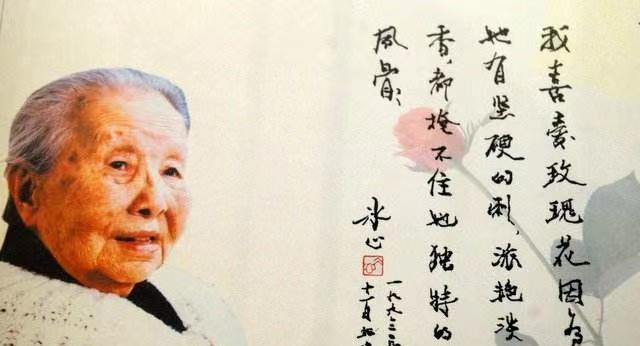 我喜爱玫瑰花因为
她有坚硬的刺，浓艳淡
香，都掩不住她独特的
风骨
冰心
十一月